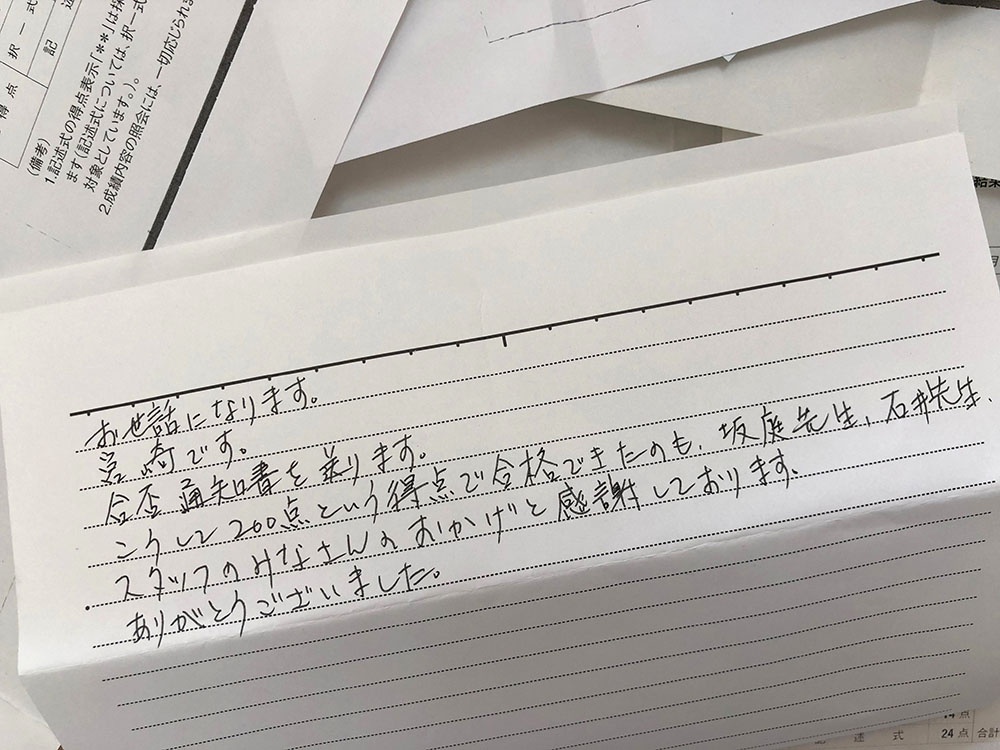 得点
択一式
記
(備考)
1.記述式の得点表示「**」は採
ます(記述式については、択一式
対象としています。)。
2.成績内容の照会には、一切応じられま
結果
お世話になります。
宮崎です。
合否通知書を送ります。
こうして200点という得点で合格できたのも、坂庭先生、石井先生、
スタッフのみなさんのおかげと感謝しております。
ありがとうございました。
14点
24点 合計
述式